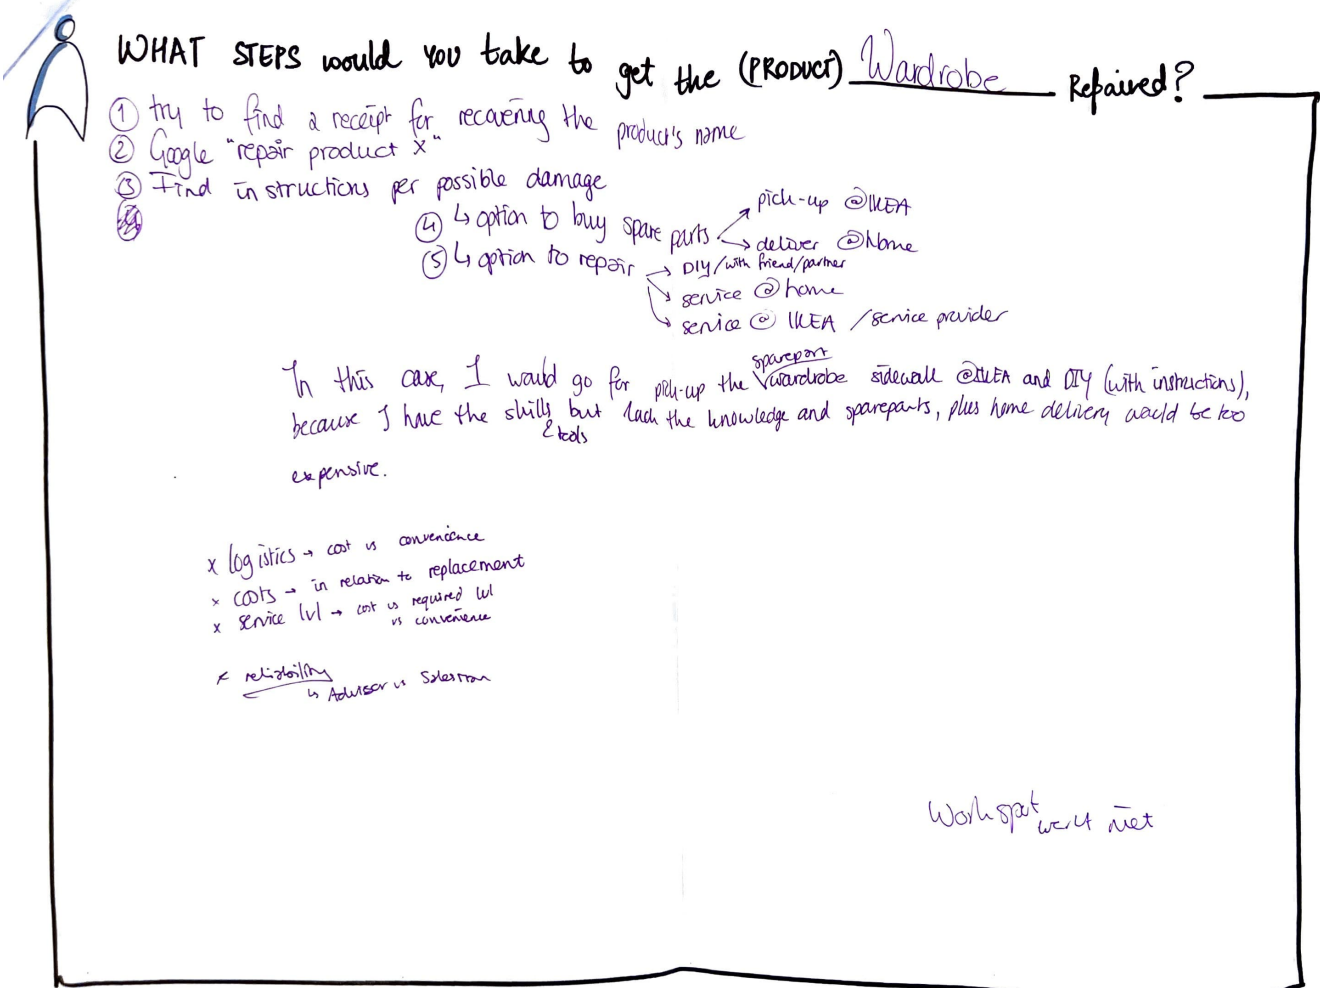 WHAT STEPS would you take to get the (PRODUCT) Wardrobe Repaired?
① try to find a receipt for recovering the product's name
② Google "repair product X"
③ Find instructions per possible damage
④ ↳ option to buy spare parts → pick-up @IKEA
→ deliver @home
⑤ ↳ option to repair → DIY/with friend/partner
→ service @home
→ service @ IKEA / service provider
In this case, I would go for pick-up the sparepart wardrobe sidewall @IKEA and DIY (with instructions),
because I have the skills & tools but lack the knowledge and spareparts, plus home delivery would be too
expensive.
x logistics → cost vs convenience
x costs → in relation to replacement
x service lvl → cost vs required lvl
vs convenience
x reliability
↳ Advisor vs Salesman
werkt niet